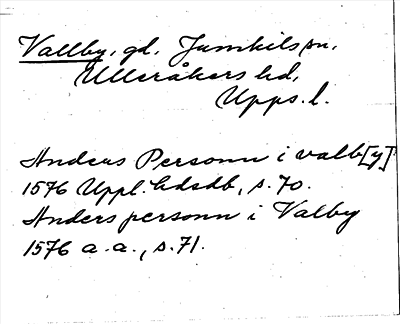 Vallby, gd, Jumkils sn,
Ulleråkers hd,
Upps. l.
Anders Personn i valb[y]
1576 Uppl. hdsdb, s. 70.
Anders personn i Valby
1576 a. a., s. 71.